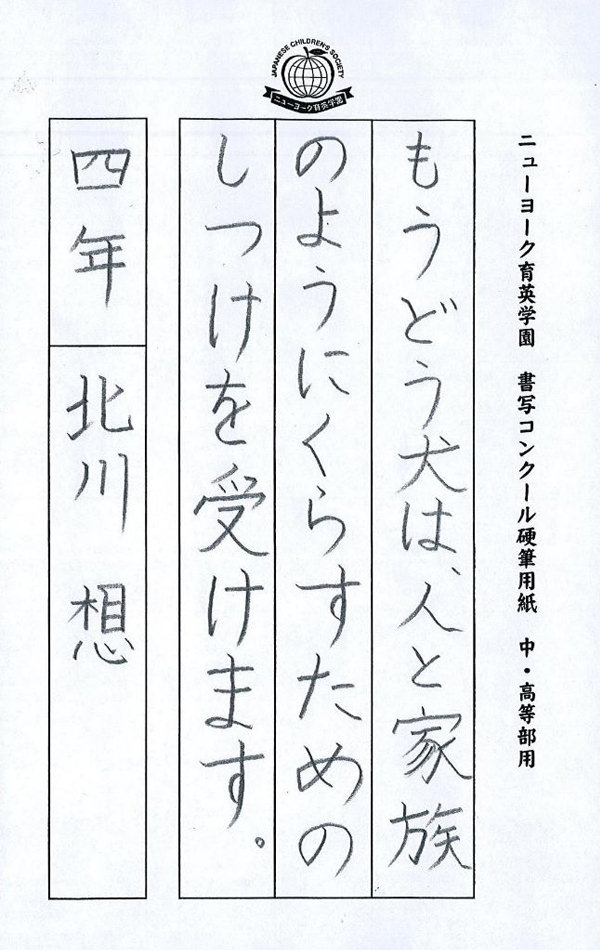 JAPANESE CHILDREN'S SOCIETY
ニューヨーク育英学園
ニューヨーク育英学園 書写コンクール硬筆用紙 中・高等部用
もうどう犬は、人と家族
のようにくらすための
しつけを受けます。
四年 北川 想